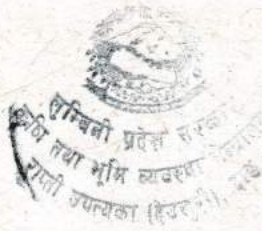 लुम्बिनी प्रदेश सरकार
कृषि तथा भूमि व्यवस्था
राप्ती उपत्यका (देउखुरी),